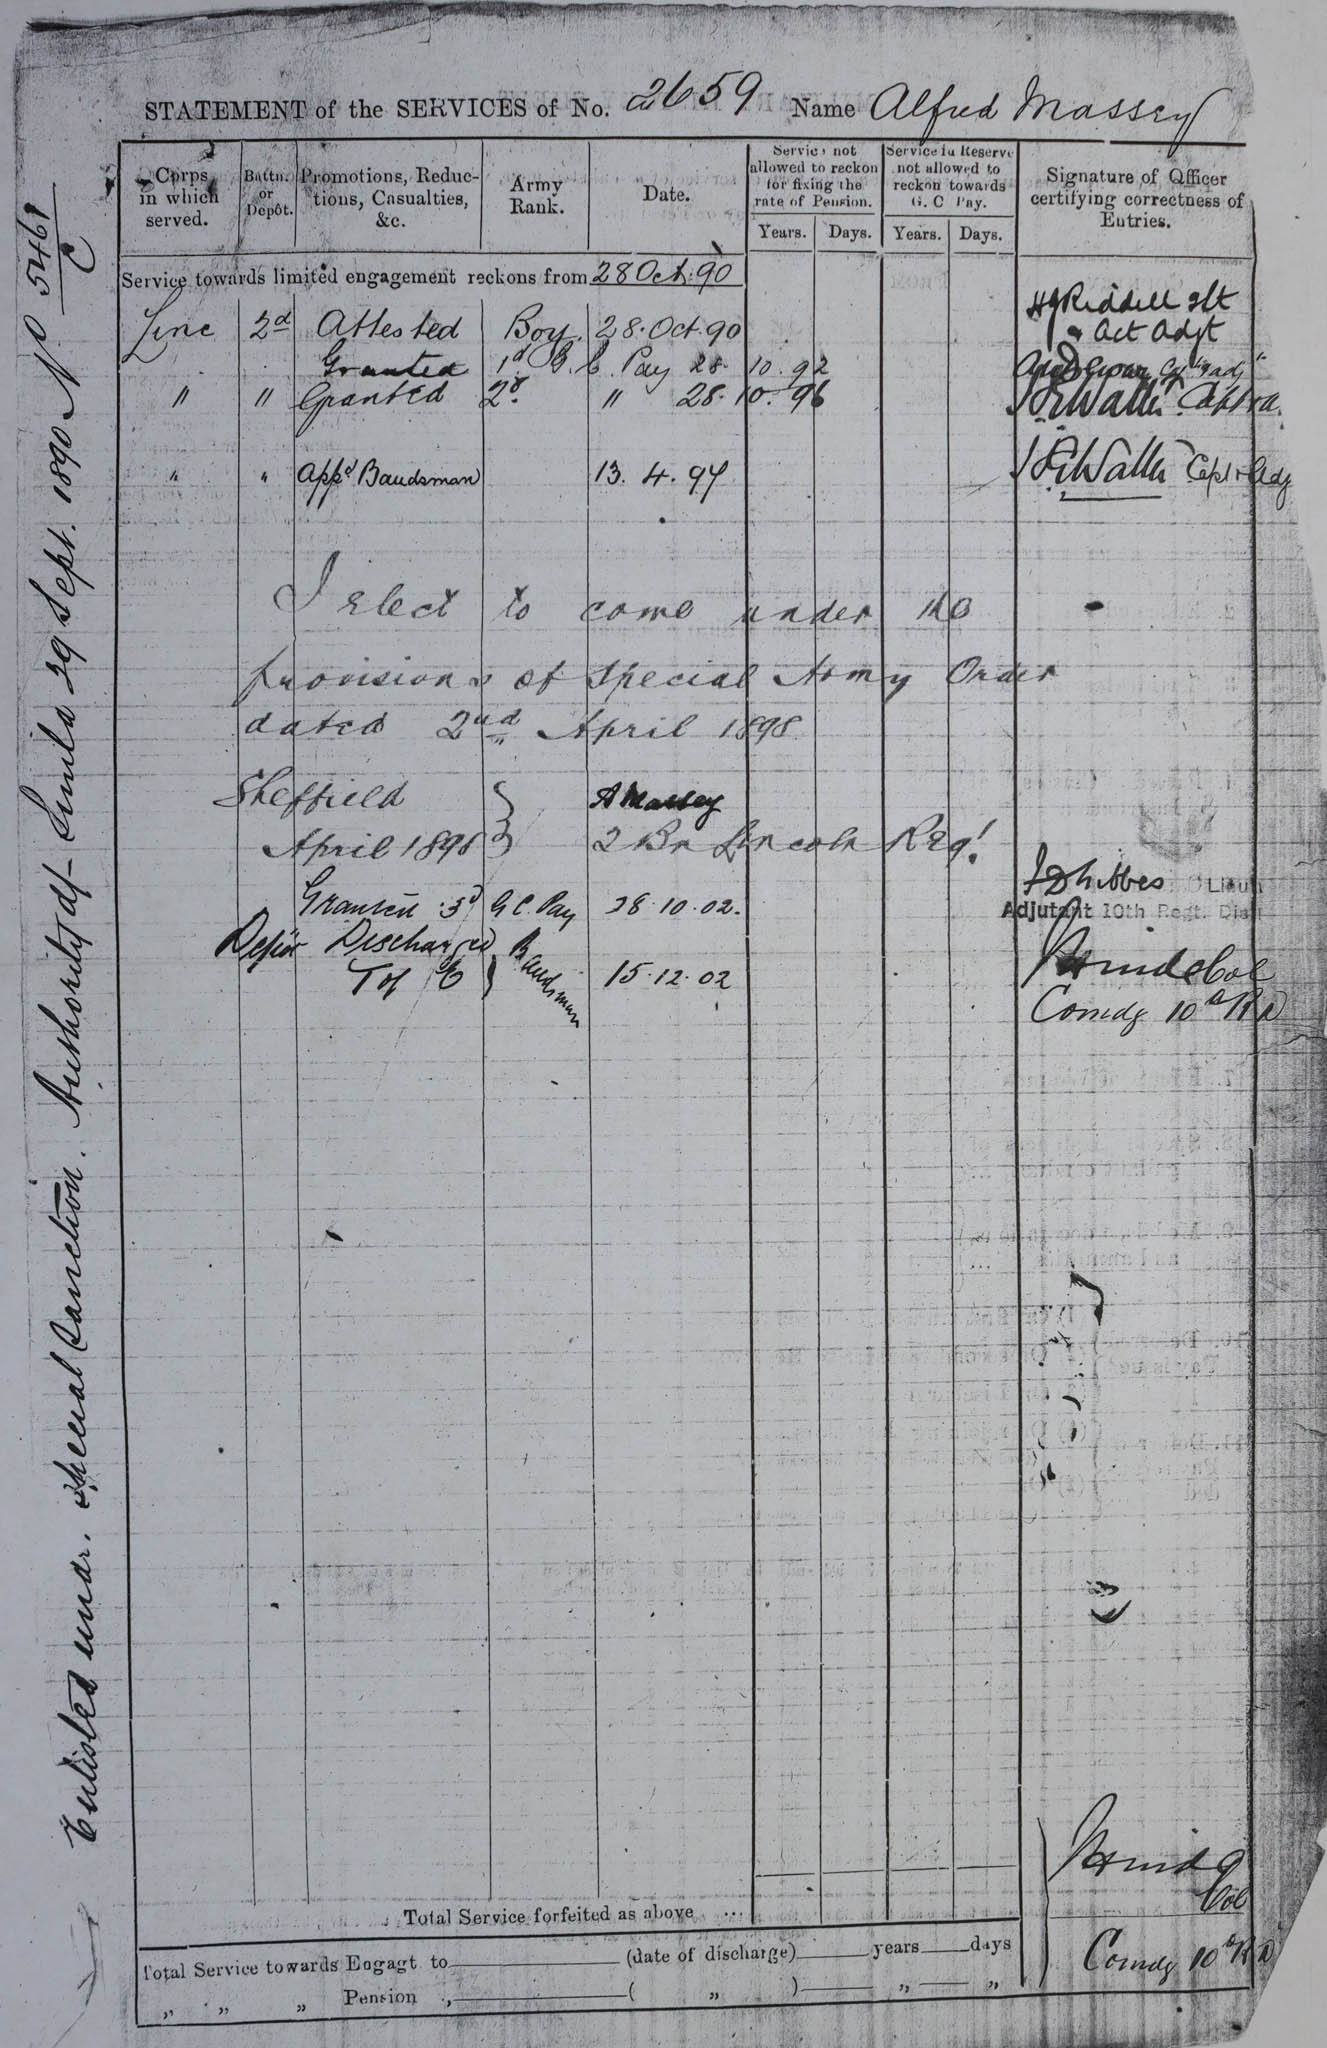 STATEMENT of the SERVICES of No. 2659 Name Alfred Massey
Corps in which served.
Battn. or Depôt.
Promotions, Reductions, Casualties, &c.
Army Rank.
Date.
Service not allowed to reckon for fixing the rate of Pension.
Service in Reserve not allowed to reckon towards G. C. Pay.
Signature of Officer certifying correctness of Entries.
Years. Days. Years. Days.
Service towards limited engagement reckons from 28 Oct. 90
Line 2d Attested Boy. 28. Oct. 90 Riddell 2lt
Act Adjt
Granted 1d G. C. Pay 28. 10. 92
" " Granted 2d. " 28. 10. 96
" " Appd Bandsman 13. 4. 97 Capt & Adj
I elect to come under the
provisions of special Army Order
dated 2nd April 1898
Sheffield } A Massey
April 1898 } 2 Bn Lincoln Regt.
Granted 3d G C. Pay 28. 10. 02. Lieut
Adjutant 10th Regt. Dist
Depôt Discharged } Bandsman 15. 12. 02 Col
T of E Comdg 10th R D
Enlisted under. Special Sanction. Authority d/- Simla 29 Sept. 1890 No 5461/C
Total Service forfeited as above ...
Col
Total Service towards Engagt to (date of discharge) years days
Comdg 10th R D
" " " Pension , ( " ) " "